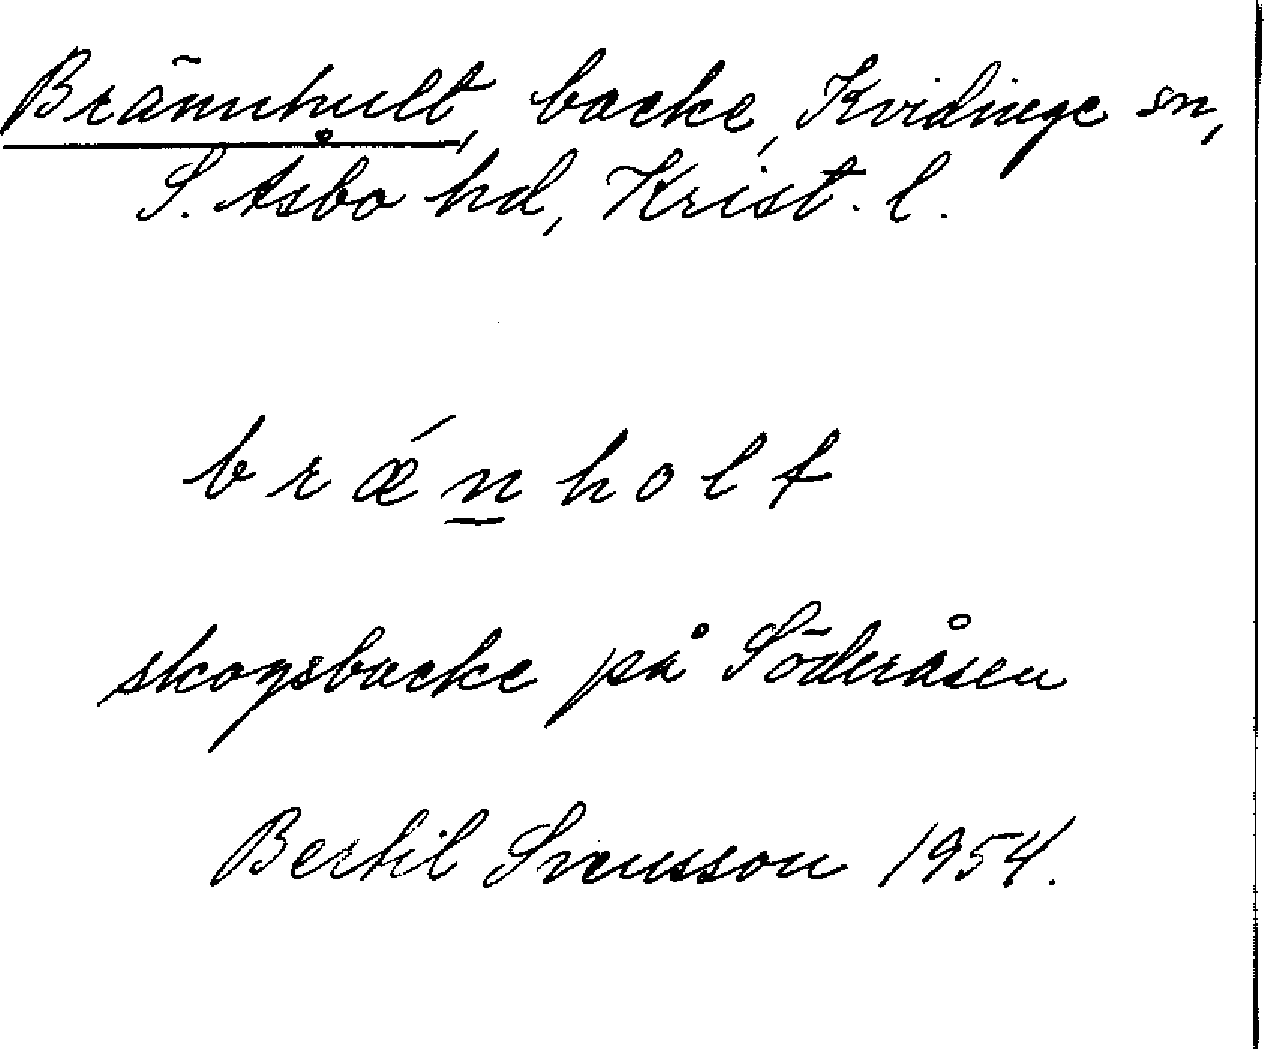 Brännhult, backe, Kvidinge sn,
S. Åsbo hd, Krist. l.
brǽn̲holt
skogsbacke på Söderåsen
Bertil Svensson 1954.